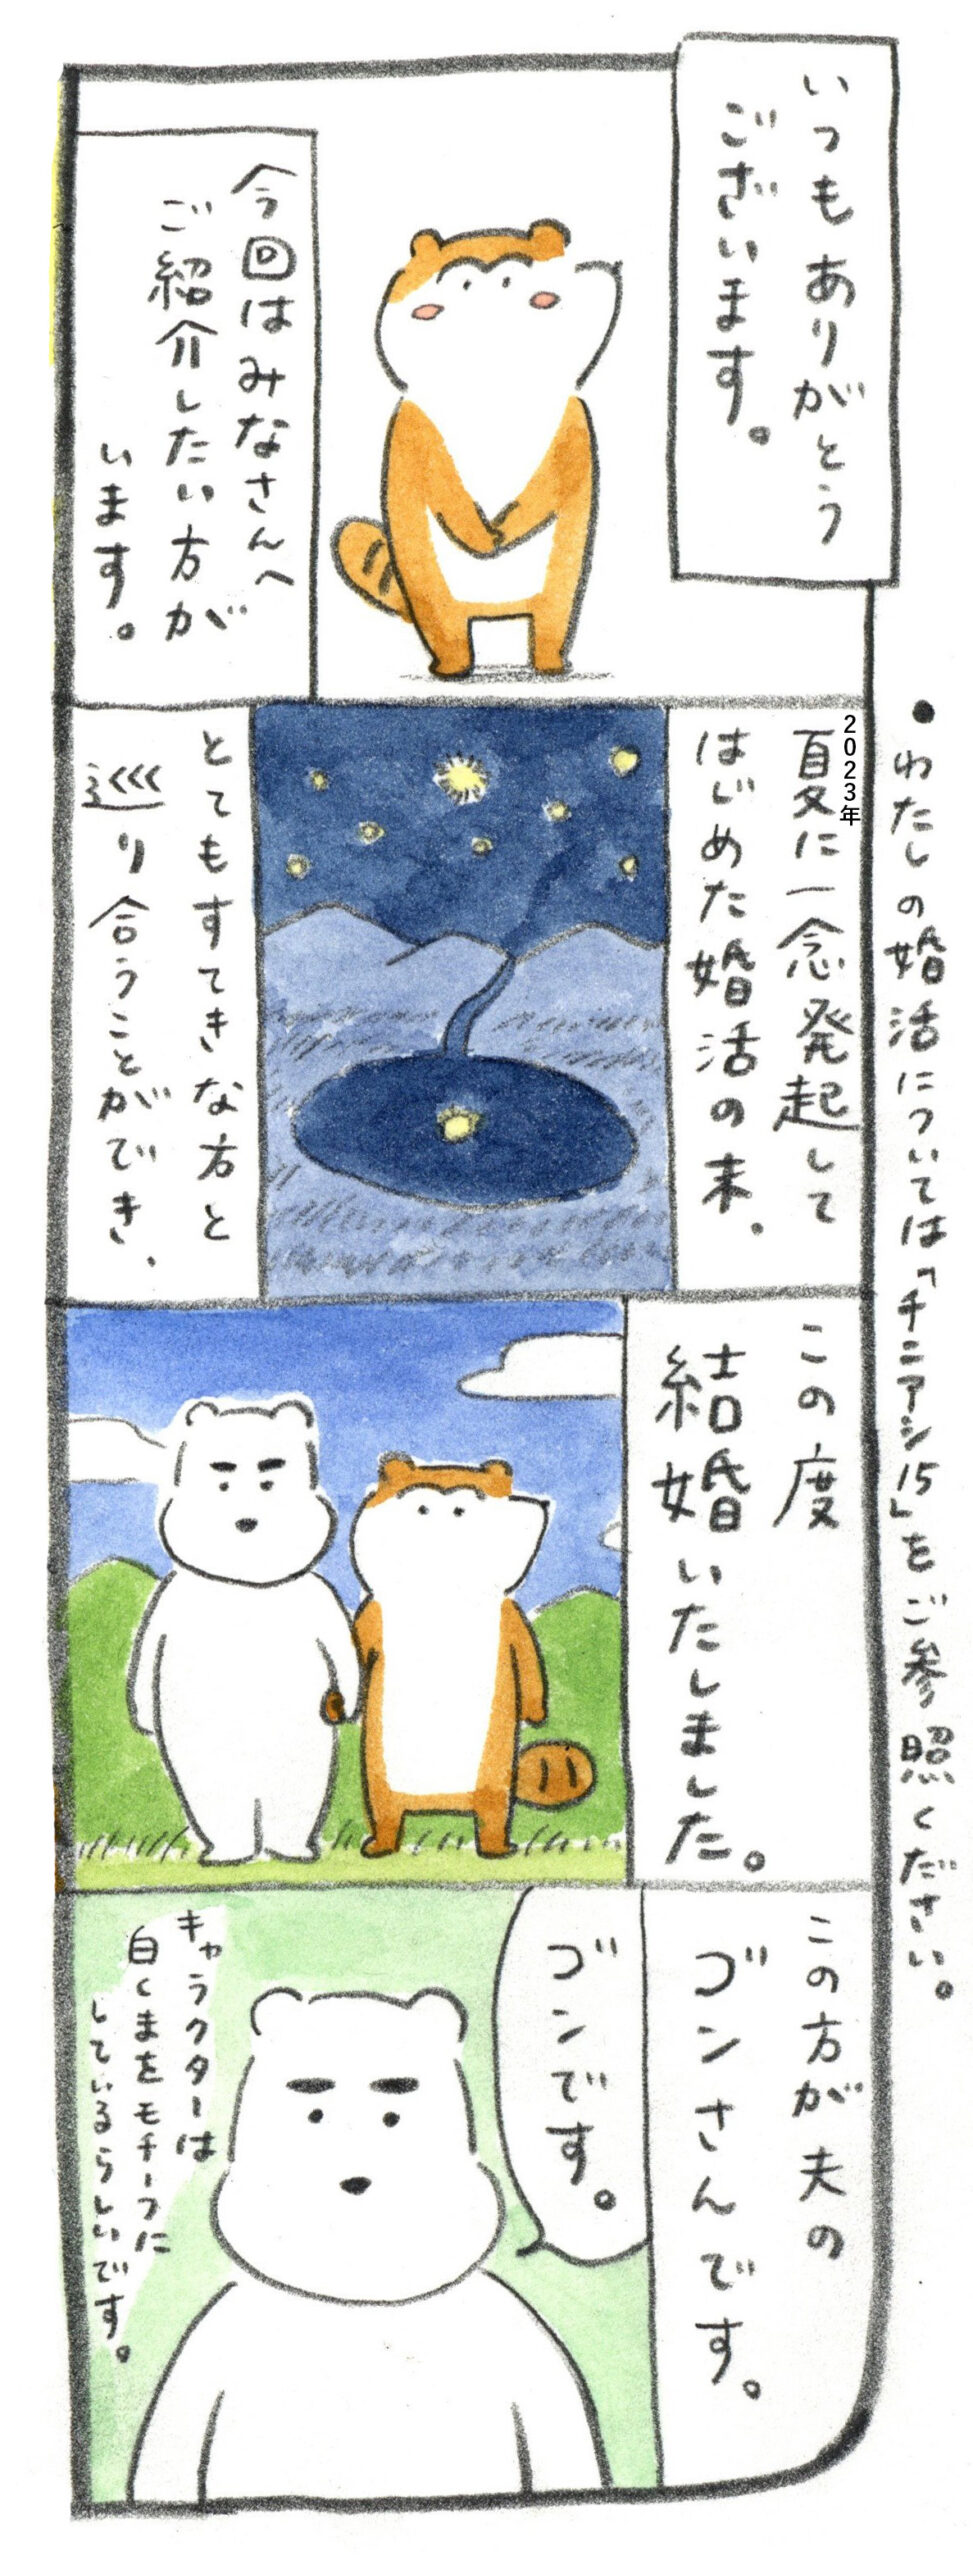 いつもありがとう
ございます。
今回はみなさんへ
ご紹介したい方が
います。
2023年
夏に一念発起して
はじめた婚活の末、
とてもすてきな方と
巡り合うことができ、
この度
結婚いたしました。
この方が夫の
ゴンさんです。
ゴンです。
キャラクターは
白くまをモチーフに
しているらしいです。
●わたしの婚活については「チニアシ15」をご参照ください。